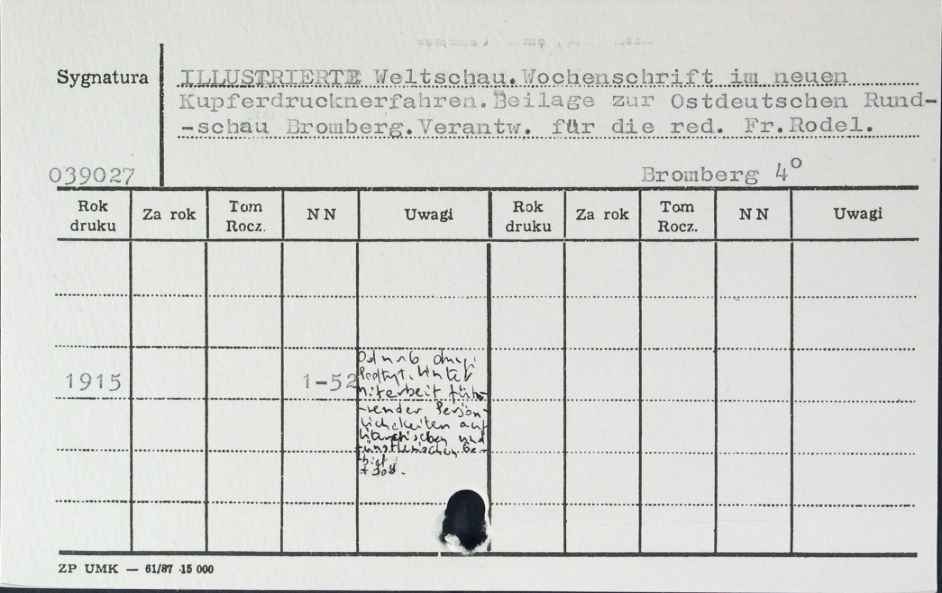 Sygnatura
ILLUSTRIERTE Weltschau.Wochenschrift im neuen
Kupferdrucknerfahren.Beilage zur Ostdeutschen Rund-
-schau Bromberg.Verantw. für die red. Fr.Rodel.
039027
Bromberg 4°
Rok druku Za rok Tom Rocz. NN Uwagi Rok druku Za rok Tom Rocz. NN Uwagi
1915 1-52
Od nr 6 drugi
Podtyt. Unter
Mitarbeit füh-
-render Persön-
lichkeiten auf
literarischen und
künstlerischen Ge-
-biet
ZP UMK — 61/87 15 000